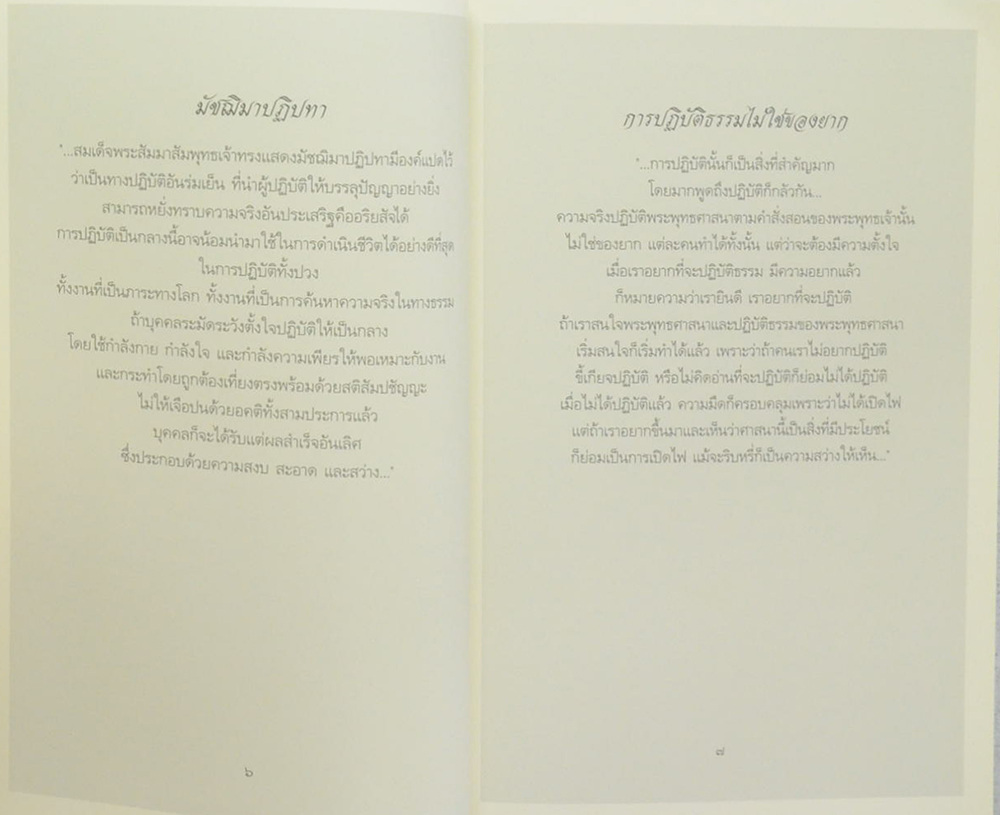 มัชฌิมาปฏิปทา
"...สมเด็จพระสัมมาสัมพุทธเจ้าทรงแสดงมัชฌิมาปฏิปทามีองค์แปดไว้
ว่าเป็นทางปฏิบัติอันร่มเย็น ที่นำผู้ปฏิบัติให้บรรลุปัญญาอย่างยิ่ง
สามารถหยั่งทราบความจริงอันประเสริฐคืออริยสัจได้
การปฏิบัติเป็นกลางนี้อาจน้อมนำมาใช้ในการดำเนินชีวิตได้อย่างดีที่สุด
ในการปฏิบัติทั้งปวง
ทั้งงานที่เป็นภาระทางโลก ทั้งงานที่เป็นการค้นหาความจริงในทางธรรม
ถ้าบุคคลระมัดระวังตั้งใจปฏิบัติให้เป็นกลาง
โดยใช้กำลังกาย กำลังใจ และกำลังความเพียรให้พอเหมาะกับงาน
และกระทำโดยถูกต้องเที่ยงตรงพร้อมด้วยสติสัมปชัญญะ
ไม่ให้เจือปนด้วยอคติทั้งสามประการแล้ว
บุคคลก็จะได้รับแต่ผลสำเร็จอันเลิศ
ซึ่งประกอบด้วยความสงบ สะอาด และสว่าง..."
๖
การปฏิบัติธรรมไม่ใช่ของยาก
"...การปฏิบัตินั้นก็เป็นสิ่งที่สำคัญมาก
โดยมากพูดถึงปฏิบัติก็กลัวกัน...
ความจริงปฏิบัติพระพุทธศาสนาตามคำสั่งสอนของพระพุทธเจ้านั้น
ไม่ใช่ของยาก แต่ละคนทำได้ทั้งนั้น แต่ว่าจะต้องมีความตั้งใจ
เมื่อเราอยากที่จะปฏิบัติธรรม มีความอยากแล้ว
ก็หมายความว่าเรายินดี เราอยากที่จะปฏิบัติ
ถ้าเราสนใจพระพุทธศาสนาและปฏิบัติธรรมของพระพุทธศาสนา
เริ่มสนใจก็เริ่มทำได้แล้ว เพราะว่าถ้าคนเราไม่อยากปฏิบัติ
ขี้เกียจปฏิบัติ หรือไม่คิดอ่านที่จะปฏิบัติก็ย่อมไม่ได้ปฏิบัติ
เมื่อไม่ได้ปฏิบัติแล้ว ความมืดก็ครอบคลุมเพราะว่าไม่ได้เปิดไฟ
แต่ถ้าเราอยากขึ้นมาและเห็นว่าศาสนานี้เป็นสิ่งที่มีประโยชน์
ก็ย่อมเป็นการเปิดไฟ แม้จะริบหรี่ก็เป็นความสว่างให้เห็น..."
๗